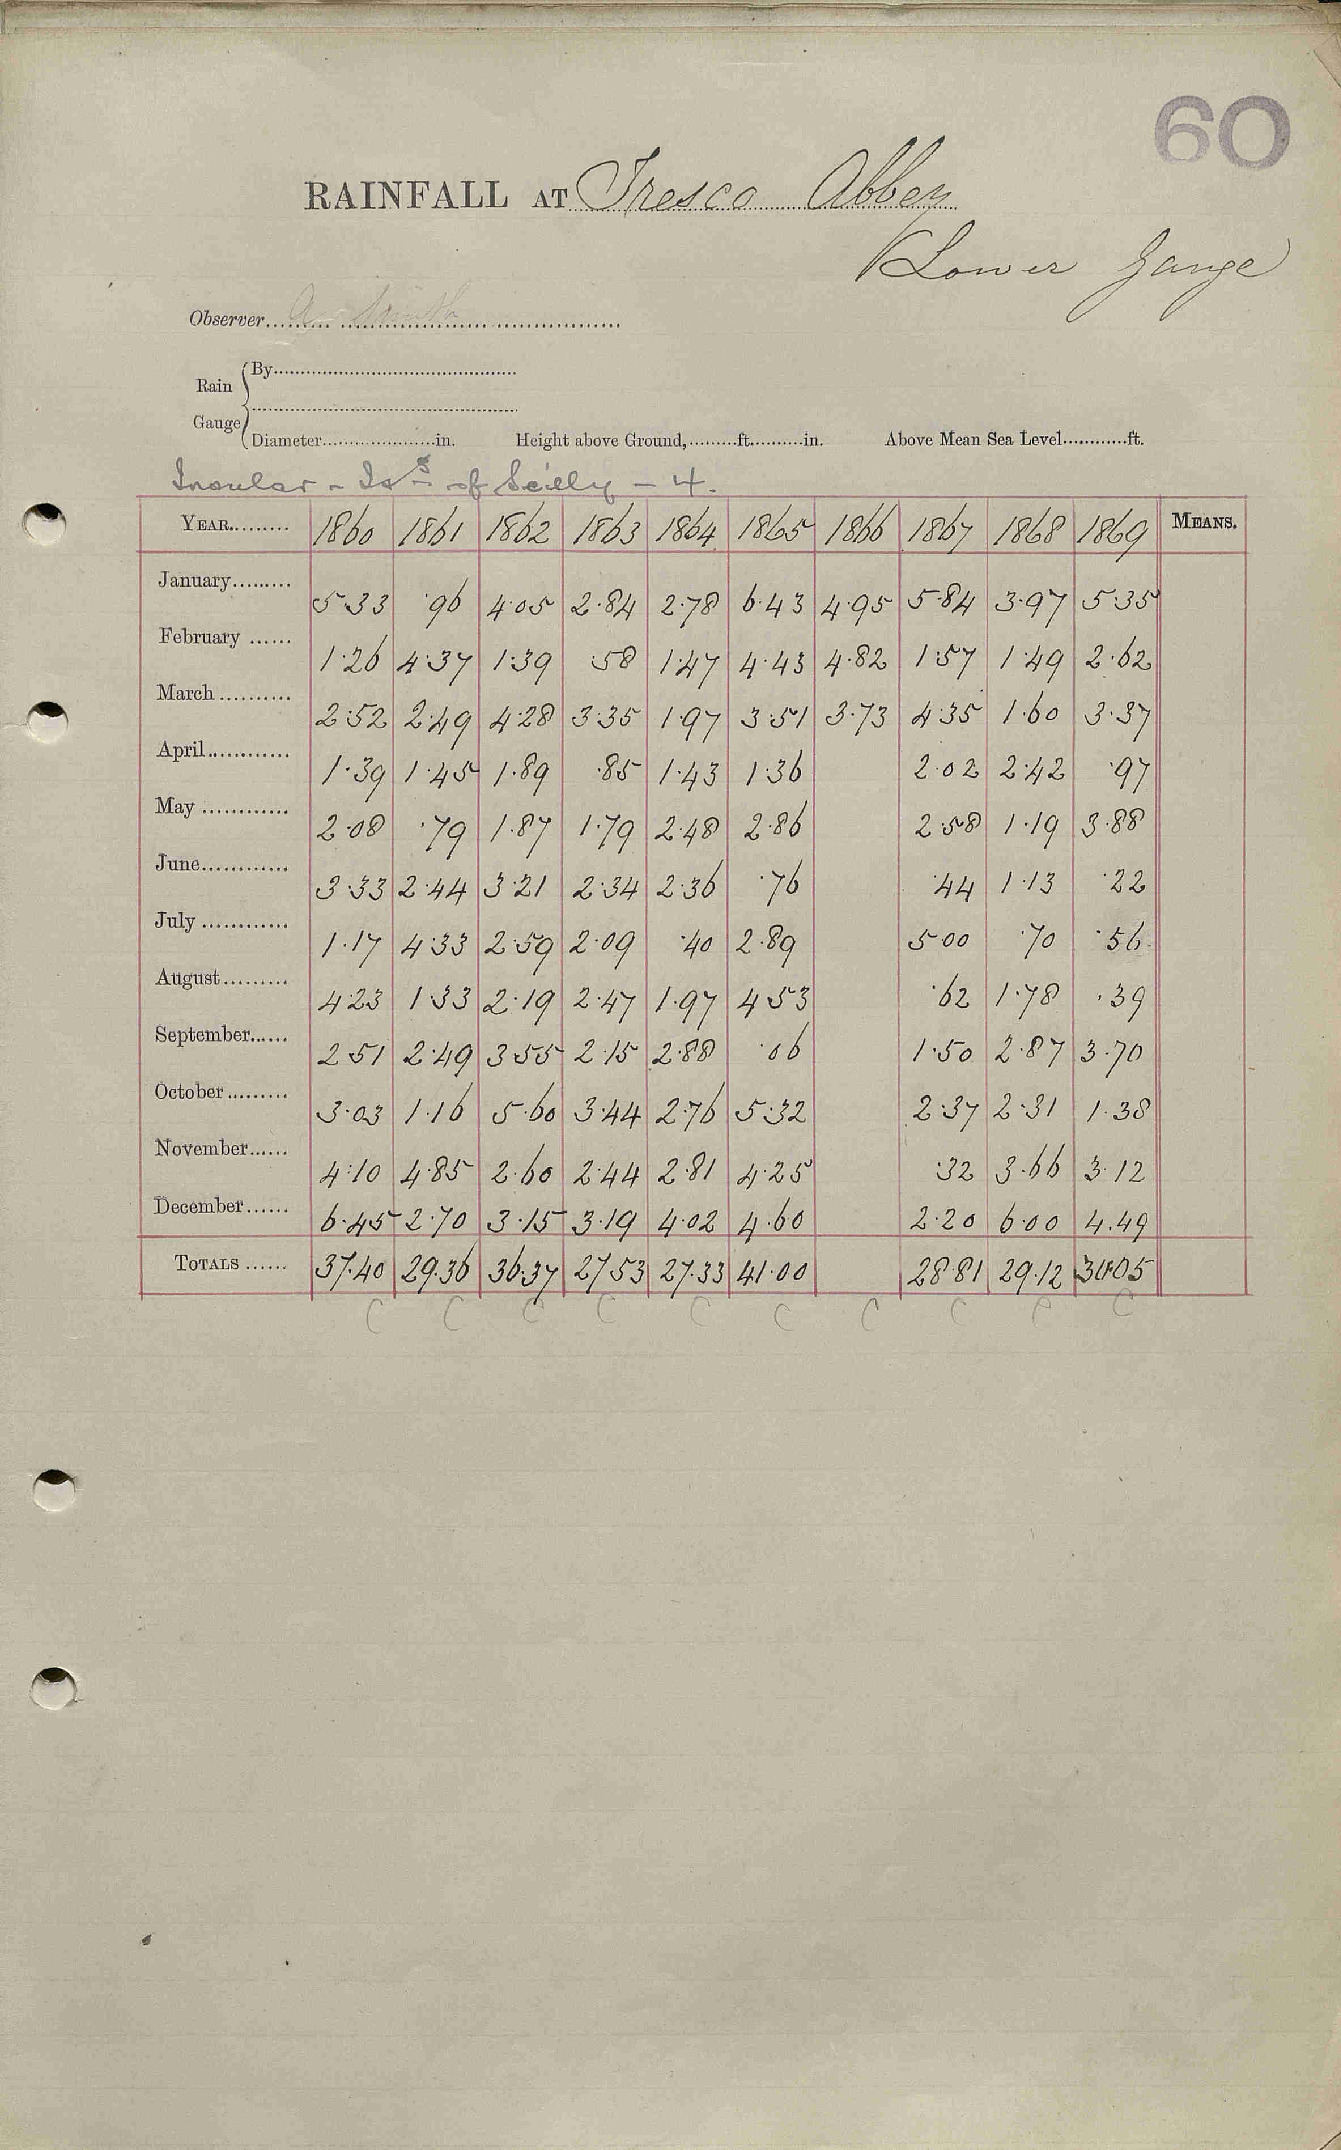 60
RAINFALL AT Tresco Abbey
Lower Gauge
Observer A Smith
Rain Gauge
By
Diameter in. Height above Ground, ft. in. Above Mean Sea Level ft.
Insular - Is^s of Scilly - 4.
YEAR 1860 1861 1862 1863 1864 1865 1866 1867 1868 1869 MEANS.
January 5.33 .96 4.05 2.84 2.78 6.43 4.95 5.84 3.97 5.35
February 1.26 4.37 1.39 .58 1.47 4.43 4.82 1.57 1.49 2.62
March 2.52 2.49 4.28 3.35 1.97 3.51 3.73 4.35 1.60 3.37
April 1.39 1.45 1.89 .85 1.43 1.36 2.02 2.42 .97
May 2.08 .79 1.87 1.79 2.48 2.86 2.58 1.19 3.88
June 3.33 2.44 3.21 2.34 2.36 .76 .44 1.13 .22
July 1.17 4.33 2.59 2.09 .40 2.89 5.00 .70 .56
August 4.23 1.33 2.19 2.47 1.97 4.53 .62 1.78 .39
September 2.51 2.49 3.55 2.15 2.88 .06 1.50 2.87 3.70
October 3.03 1.16 5.60 3.44 2.76 5.32 2.37 2.31 1.38
November 4.10 4.85 2.60 2.44 2.81 4.25 .32 3.66 3.12
December 6.45 2.70 3.15 3.19 4.02 4.60 2.20 6.00 4.49
TOTALS 37.40 29.36 36.37 27.53 27.33 41.00 28.81 29.12 30.05
C C C C C C C C C C